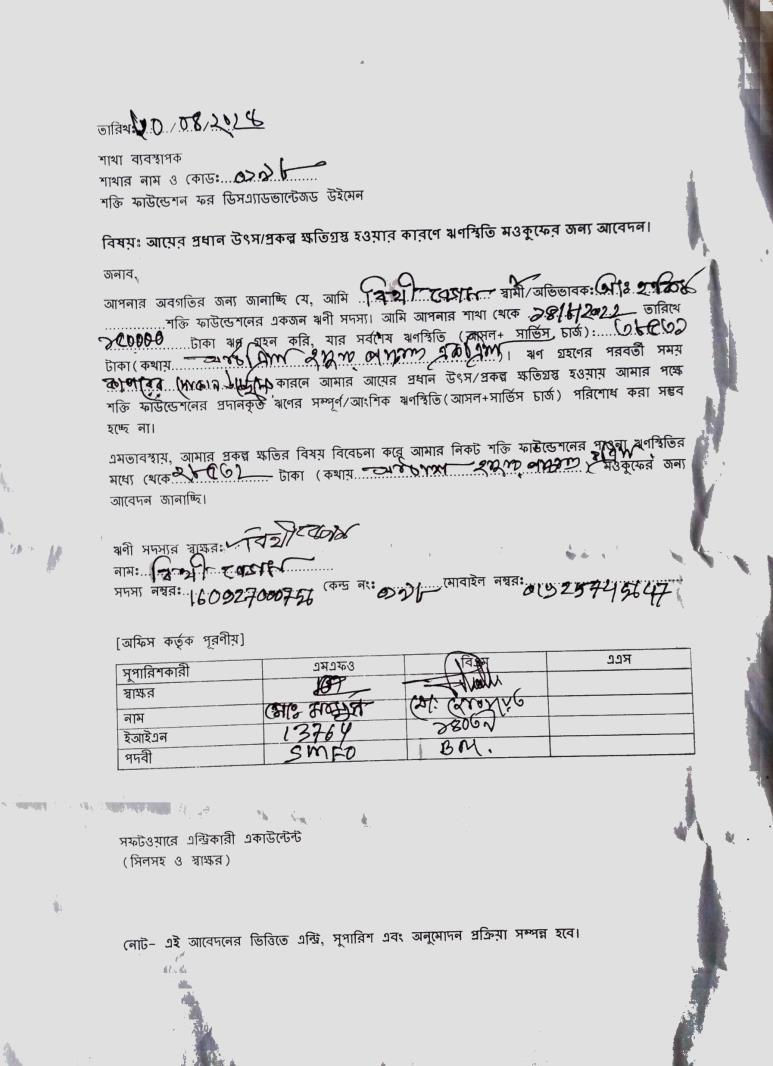 তারিখ: ২০/০৪/২০২৪
শাখা ব্যবস্থাপক
শাখার নাম ও কোড:....০১৯৮
শক্তি ফাউন্ডেশন ফর ডিসএ্যাডভান্টেজড উইমেন
বিষয়: আয়ের প্রধান উৎস/প্রকল্প ক্ষতিগ্রস্থ হওয়ার কারণে ঋণস্থিতি মওকুফের জন্য আবেদন।
জনাব,
আপনার অবগতির জন্য জানাচ্ছি যে, আমি ..বিথী বেগম স্বামী/অভিভাবক: মোঃ
শক্তি ফাউন্ডেশনের একজন ঋণী সদস্য। আমি আপনার শাখা থেকে তারিখে
টাকা ঋণ গ্রহন করি, যার সর্বশেষ ঋণস্থিতি (আসল+ সার্ভিস চার্জ):
টাকা(কথায় হাজার পাঁচশত )। ঋণ গ্রহণের পরবর্তী সময়
কাপড়ের দোকান কারনে আমার আয়ের প্রধান উৎস/প্রকল্প ক্ষতিগ্রস্থ হওয়ায় আমার পক্ষে
শক্তি ফাউন্ডেশনের প্রদানকৃত ঋণের সম্পূর্ণ/আংশিক ঋণস্থিতি(আসল+সার্ভিস চার্জ) পরিশোধ করা সম্ভব
হচ্ছে না।
এমতাবস্থায়, আমার প্রকল্প ক্ষতির বিষয় বিবেচনা করে আমার নিকট শক্তি ফাউন্ডেশনের পাওনা ঋণস্থিতির
মধ্যে থেকে টাকা (কথায় হাজার পাঁচশত ) মওকুফের জন্য
আবেদন জানাচ্ছি।
ঋণী সদস্যর স্বাক্ষর: বিথী বেগম
নাম: বিথী বেগম
সদস্য নম্বর: 160927000756 কেন্দ্র নং: ০৭৮ মোবাইল নম্বর:
[অফিস কর্তৃক পূরণীয়]
সুপারিশকারী এমএফও বিএম এএস
স্বাক্ষর
নাম মোঃ মো:
ইআইএন 13764
পদবী SMFO BM.
সফটওয়ারে এন্ট্রিকারী একাউন্টেন্ট
(সিলসহ ও স্বাক্ষর)
নোট- এই আবেদনের ভিত্তিতে এন্ট্রি, সুপারিশ এবং অনুমোদন প্রক্রিয়া সম্পন্ন হবে।